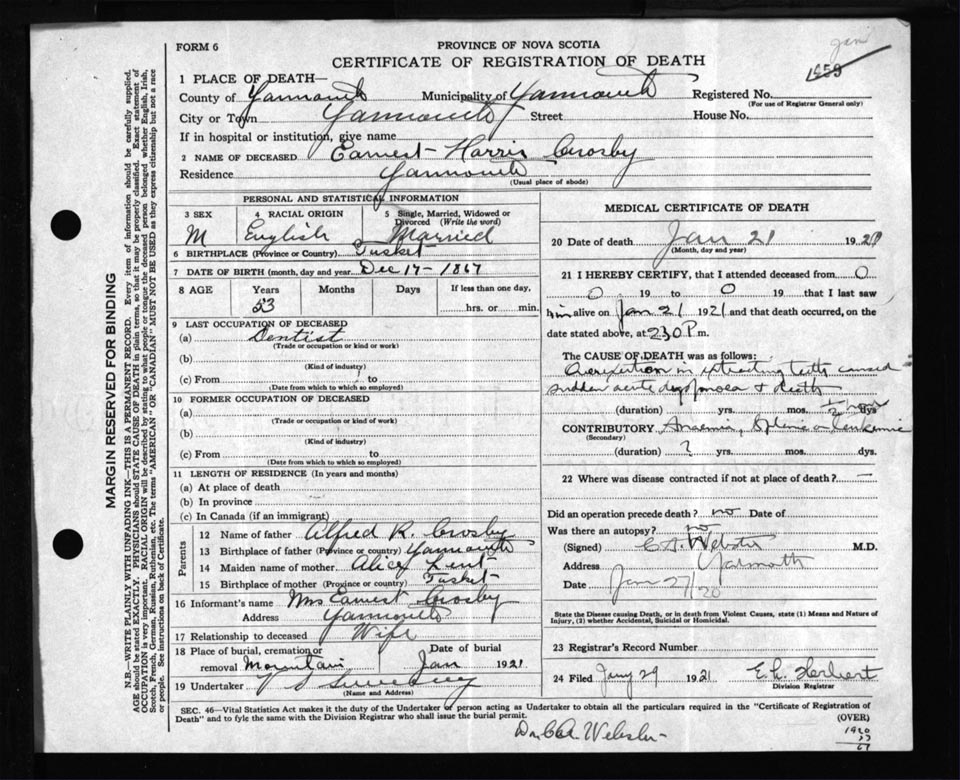 Jan
1659
FORM 6
PROVINCE OF NOVA SCOTIA
CERTIFICATE OF REGISTRATION OF DEATH
MARGIN RESERVED FOR BINDING
N.B.—WRITE PLAINLY WITH UNFADING INK—THIS IS A PERMANENT RECORD. Every item of information should be carefully supplied.
AGE should be stated EXACTLY. PHYSICIANS should STATE CAUSE OF DEATH in plain terms, so that it may be properly classified. Exact statement of
OCCUPATION is very important. RACIAL ORIGIN will be described by stating to what people or tongue the deceased person belonged whether English, Irish,
Scotch, French, German, Russian, Ruthenian, etc. The terms "AMERICAN" OR "CANADIAN" MUST NOT BE USED as they express citizenship but not a race
or people. See instructions on back of Certificate.
1 PLACE OF DEATH—
County of Yarmouth Municipality of Yarmouth Registered No.
(For use of Registrar General only)
City or Town Yarmouth Street House No.
If in hospital or institution, give name
2 NAME OF DECEASED Earnest Harris Crosby
Residence Yarmouth
(Usual place of abode)
PERSONAL AND STATISTICAL INFORMATION
3 SEX 4 RACIAL ORIGIN 5 Single, Married, Widowed or
Divorced (Write the word)
M English Married
6 BIRTHPLACE (Province or Country) Tusket
7 DATE OF BIRTH (month, day and year Dec 17 - 1867
8 AGE Years Months Days If less than one day,
53 hrs. or min.
9 LAST OCCUPATION OF DECEASED
(a) Dentist
(Trade or occupation or kind or work)
(b)
(Kind of industry)
(c) From to
(Date from which to which so employed)
10 FORMER OCCUPATION OF DECEASED
(a)
(Trade or occupation or kind of work)
(b)
(Kind of industry)
(c) From to
(Date from which to which so employed)
11 LENGTH OF RESIDENCE (In years and months)
(a) At place of death
(b) In province
(c) In Canada (if an immigrant)
Parents
12 Name of father Alfred R. Crosby
13 Birthplace of father (Province or country) Yarmouth
14 Maiden name of mother Alice Lent
15 Birthplace of mother (Province or country) Tusket
16 Informant's name Mrs Earnest Crosby
Address Yarmouth
17 Relationship to deceased Wife
18 Place of burial, cremation or Date of burial
removal Mountain Jan 1921
19 Undertaker V S Sweeney
(Name and Address)
MEDICAL CERTIFICATE OF DEATH
20 Date of death Jan 21 1921
(Month, day and year)
21 I HEREBY CERTIFY, that I attended deceased from 0
0 19 to 0 19 that I last saw
him alive on Jan 21 1921 and that death occurred, on the
date stated above, at 2.30 P m.
The CAUSE OF DEATH was as follows:
in extracting teeth caused
sudden acute dyspnoea & death
(duration) yrs. mos. 1/2 hour dys
CONTRIBUTORY Anaemia, Splenic or leukemic
(Secondary)
(duration) ? yrs. mos. dys.
22 Where was disease contracted if not at place of death? —
Did an operation precede death? no Date of
Was there an autopsy? no
(Signed) C A Webster M.D.
Address Yarmouth
Date Jan 27/20
State the Disease causing Death, or in death from Violent Causes, state (1) Means and Nature of
Injury, (2) whether Accidental, Suicidal or Homicidal.
23 Registrar's Record Number
24 Filed Jany 29 1921 E. L. Herbert
Division Registrar
SEC. 46—Vital Statistics Act makes it the duty of the Undertaker or person acting as Undertaker to obtain all the particulars required in the "Certificate of Registration of
Death" and to fyle the same with the Division Registrar who shall issue the burial permit.
(OVER)
Dr. C. A. Webster
1920
53
67